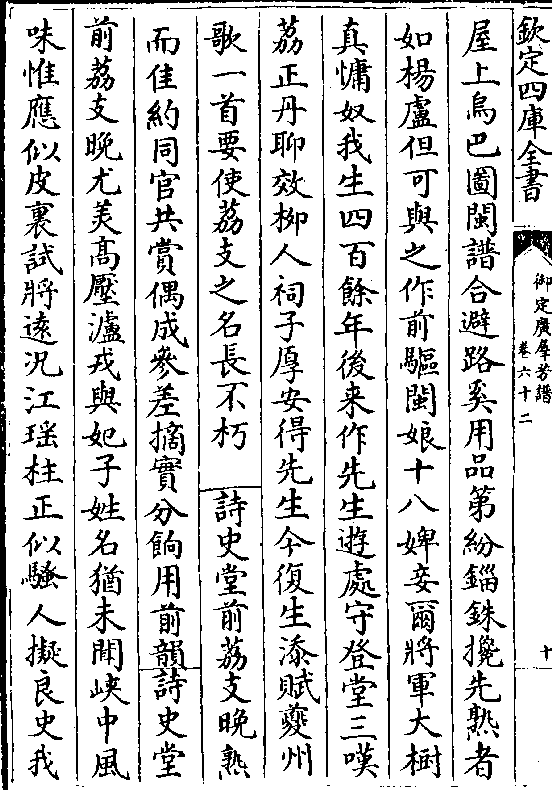 欽定四庫全書
御定廣羣芳譜
卷六十二
十
屋上烏巴圖閩譜合避路奚用品第紛錙銖攙先熟者
如楊盧但可與之作前驅閩娘十八婢妾爾將軍大樹
真慵奴我生四百餘年後来作先生遊處守登堂三嘆
荔正丹聊效柳人祠子厚安得先生今復生添賦夔州
歌一首要使荔支之名長不朽 詩史堂前荔支晚熟
而佳約同官共賞偶成參差摘實分餉用前韻詩史堂
前荔支晚尤美髙壓瀘戎與妃子姓名猶未聞峽中風
味惟應似皮裏試將遠況江瑶柱正似騷人擬良史我